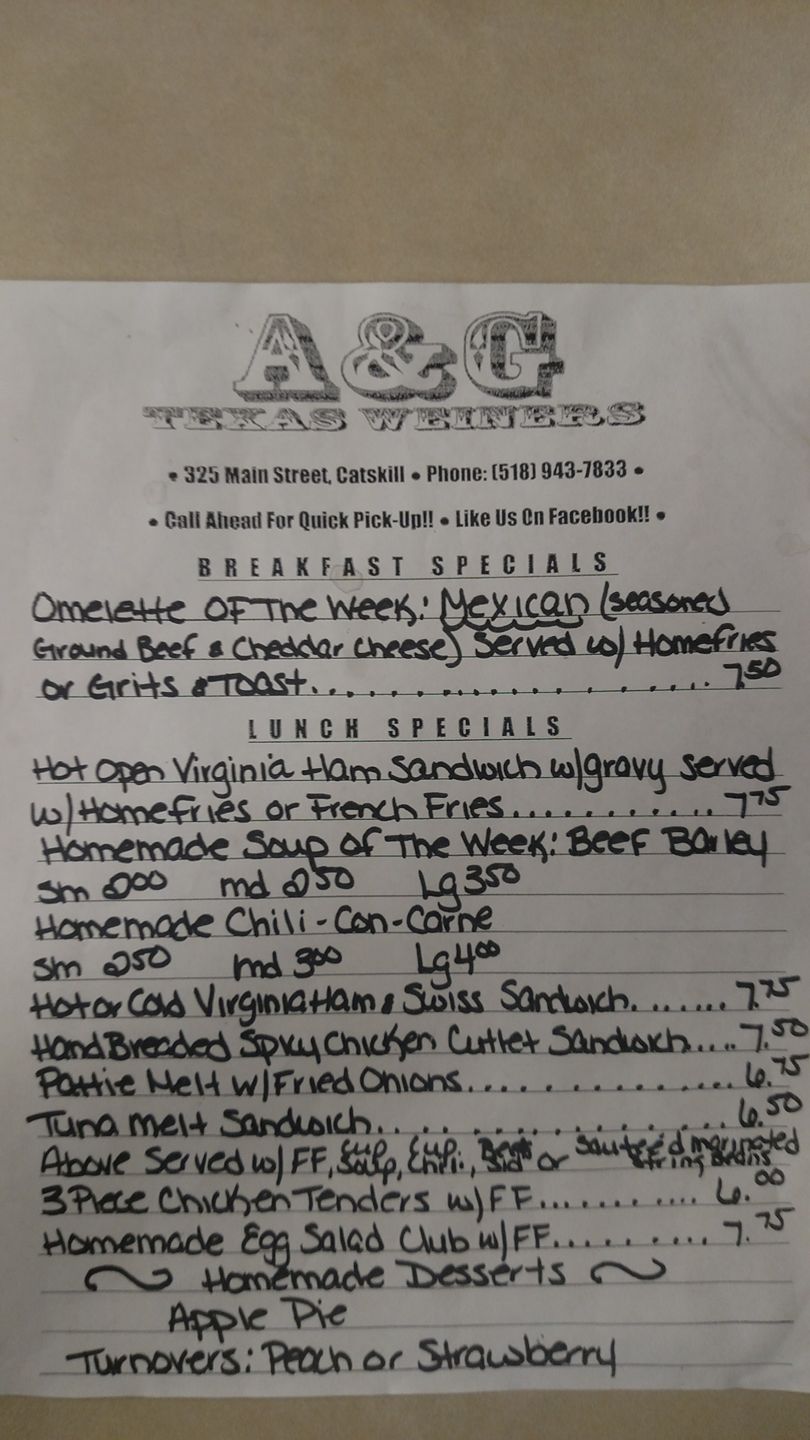 A&G
TEXAS WEINERS
• 325 Main Street, Catskill • Phone: (518) 943-7833 •
• Call Ahead For Quick Pick-Up!! • Like Us On Facebook!! •
BREAKFAST SPECIALS
Omelette OF The Week: Mexican (seasoned
Ground Beef & Cheddar Cheese) Served w/ Homefries
or Grits & Toast.................... 7.50
LUNCH SPECIALS
Hot Open Virginia Ham Sandwich w/gravy served
w/Homefries or French Fries............ 7.75
Homemade Soup Of The Week: Beef Barley
Sm 2.00 md 2.50 Lg 3.50
Homemade Chili-Con-Carne
Sm 2.50 md 3.00 Lg 4.00
Hot or Cold Virginia Ham & Swiss Sandwich....... 7.75
Hand Breaded Spicy Chicken Cutlet Sandwich.... 7.50
Pattie Melt w/Fried Onions............... 6.75
Tuna Melt Sandwich................ 6.50
Above Served w/ FF, or Sauteed marinated String Beans
3 Piece Chicken Tenders w/FF.......... 6.00
Homemade Egg Salad Club w/FF.......... 7.75
~ Homemade Desserts ~
Apple Pie
Turnovers: Peach or Strawberry